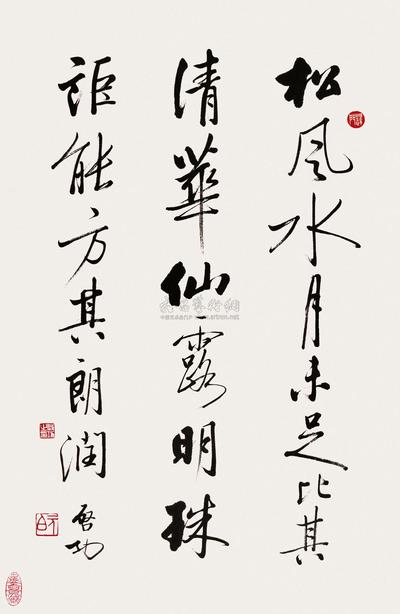 松风水月未足比其
清華仙露明珠
詎能方其朗润
啓功